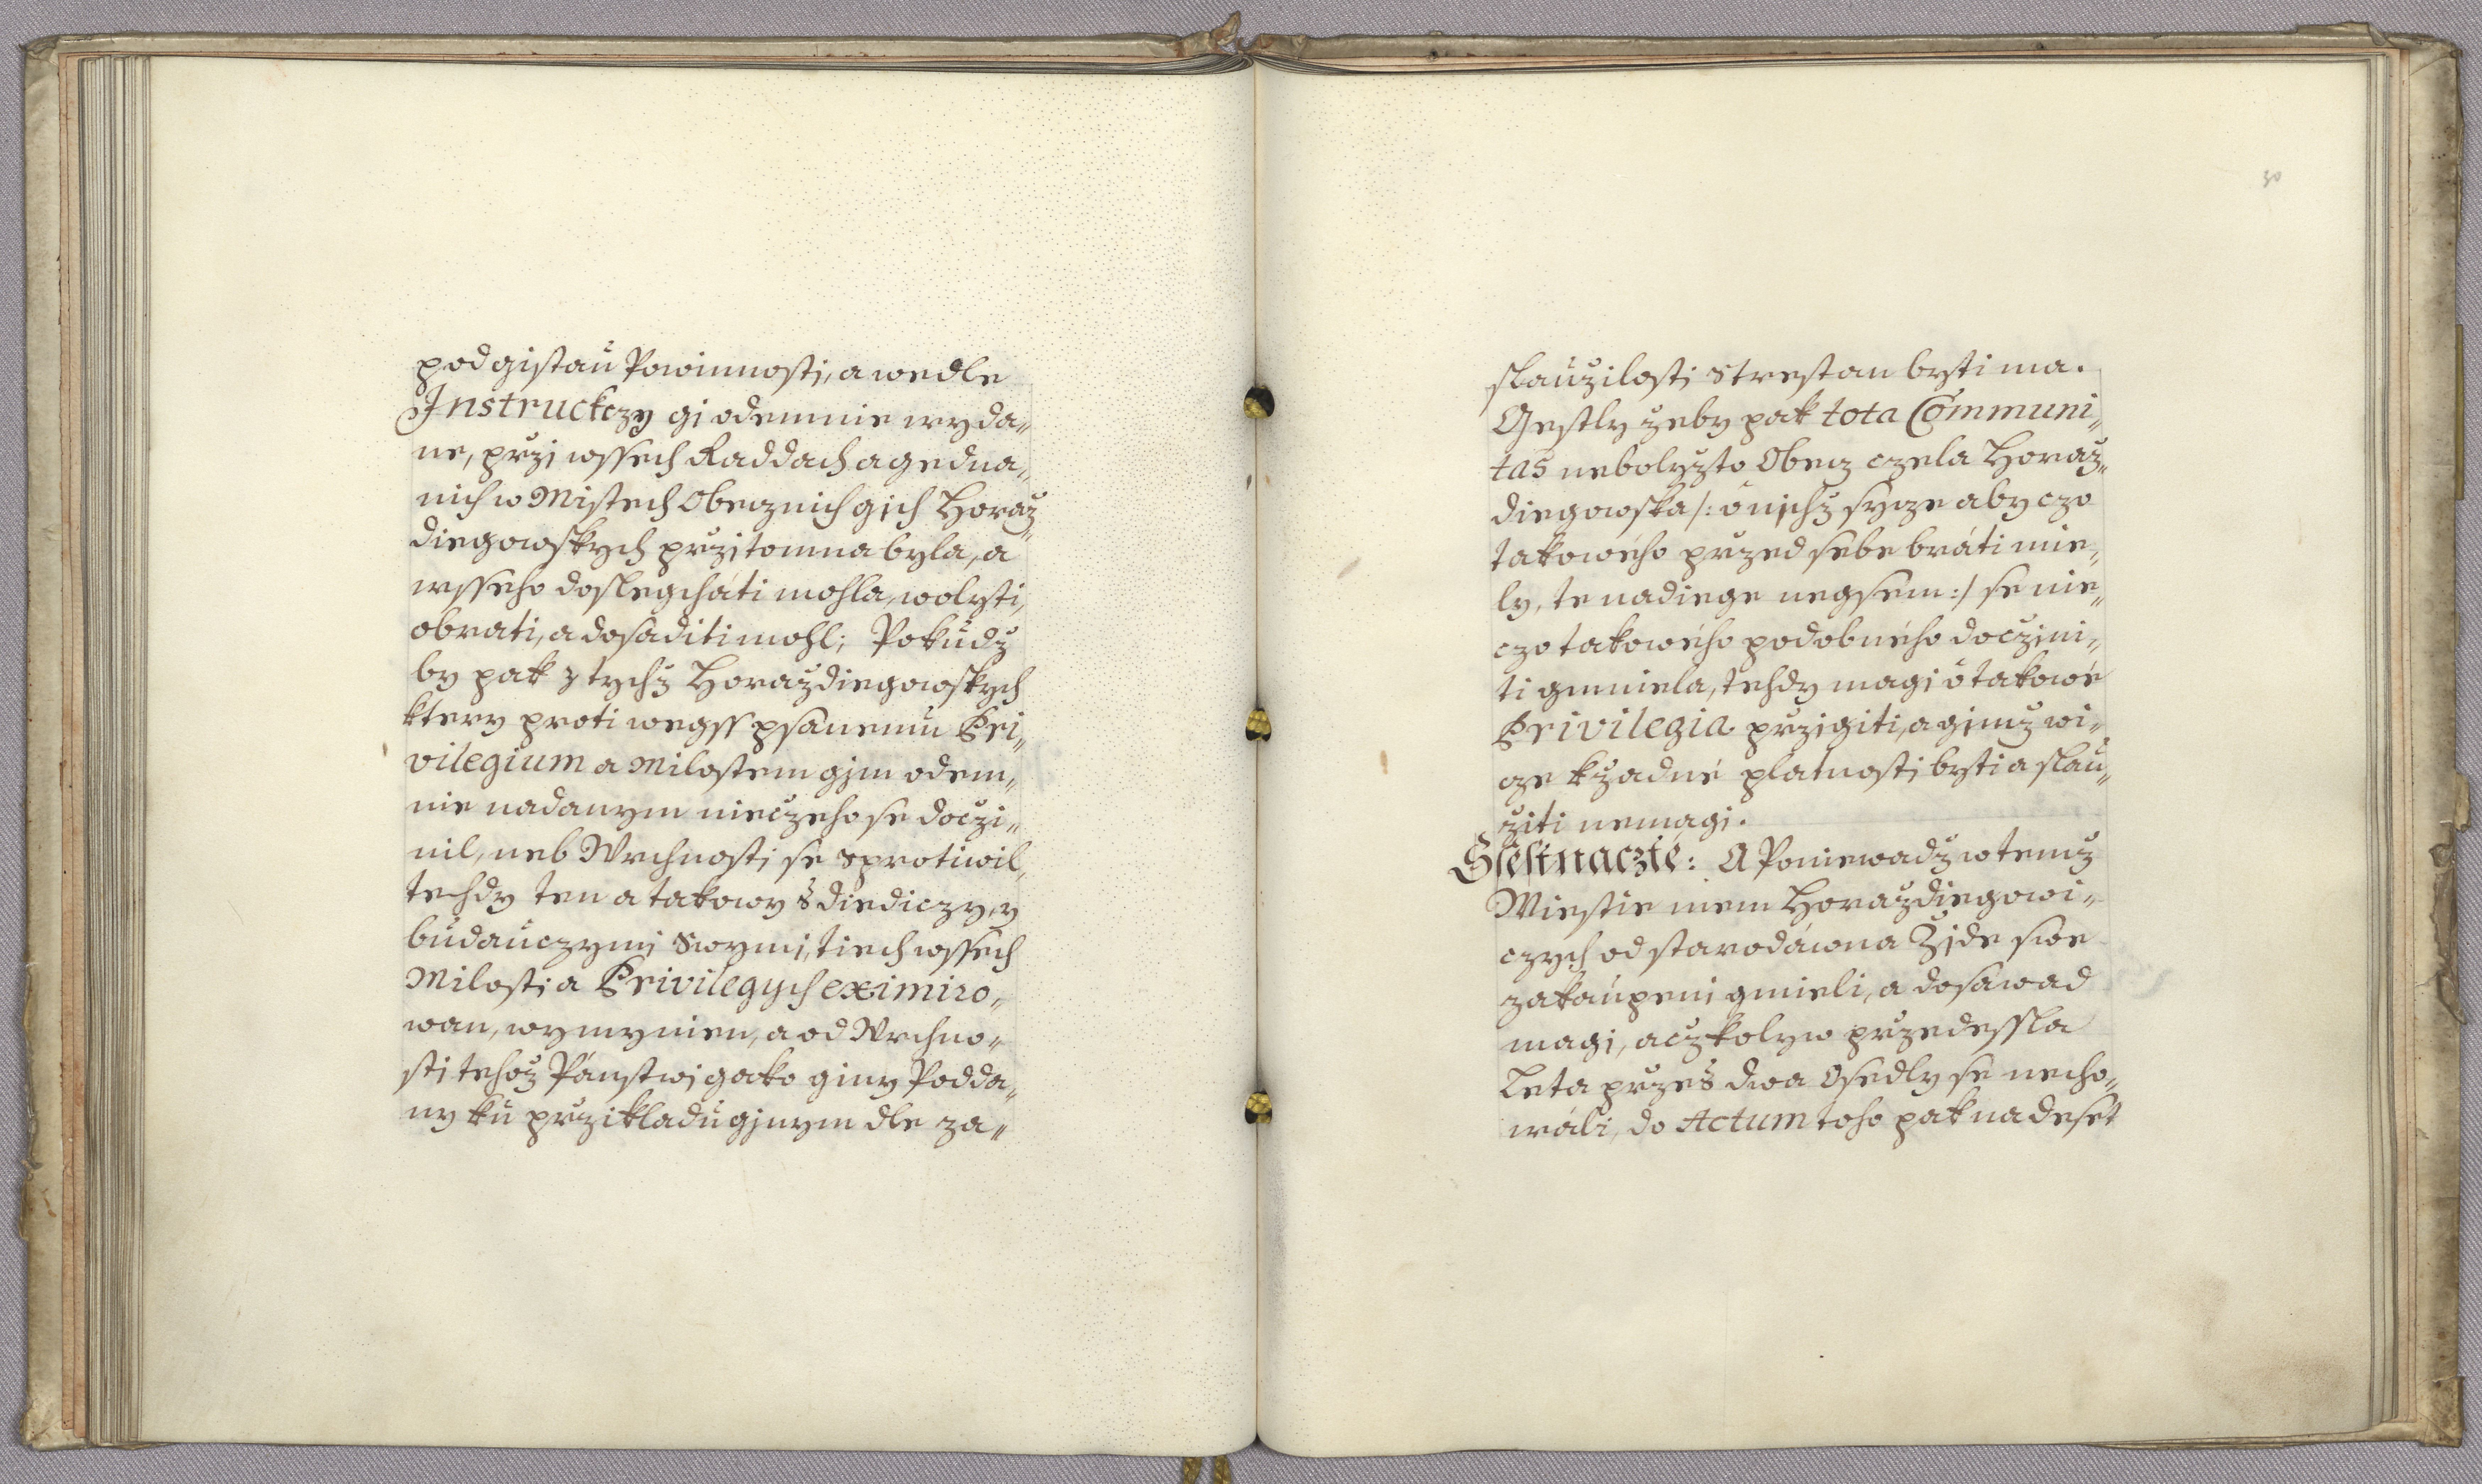 pod gistaú Powinnosti, a wedle
Instruckczy gi odemnie wyda„
ne, przi wssech Raddach a gedna„
nich w Mistech Obecznich gich Horaž„
diegowskych przitomna byla, a
wsseho doslegchati mohla, wolyti,
obrati, a dosaditi mohl; Pokudž
by pak z tychž Horaždiegowskych
ktery proti wegss psanemu Pri„
vilegium a Milostem gim odem„
nie nadanym nieczeho se doczi„
nil, neb Wrchnosti se sprotiwil,
tehdy ten a takowy s diediczy, y
budauczymi swymi, tiech wssech
Milosti a Privilegych eximiro„
wan, wymynien, a od Wrchno„
sti tehož Pánstwi gako giny Podda„
ny ku przikladu ginym dle za„
30
slaužilosti strestan byti ma.
Gestly žeby pak tota Communi„
tas nebolyžto Obecz czela Horaž„
diegowska /: o nichž sycze aby czo
takowého przed sebe bráti mie„
ly, te nadiege negsem :/ se nie„
czo takowého podobného doczini„
ti gmniela, tehdy magi o takowé
Privilegia przigiti, a gimž wi„
cze k žadné platnosti byti a slau„
žiti nemagi.
Ssestnaczte: A Poniewadž w temž
Miestie mem Horaždiegowi„
czych od starodáwna Židé swe
zakaupeni gmieli, a dosawad
magi, aczkolyw przedessla
Leta przes dwa Osedly se necho„
wáli, do Actum toho pak na deset